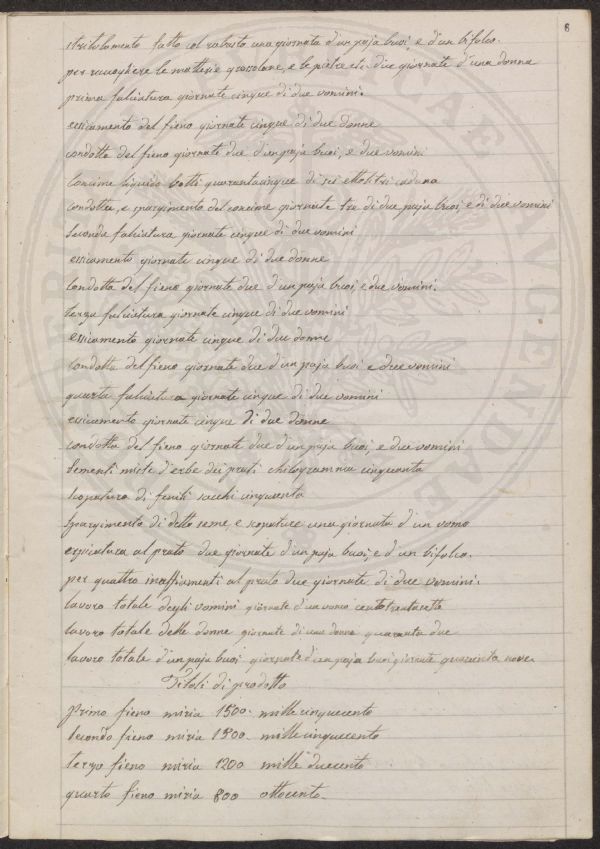 8
stritolamento fatto col rabasto una giornata d'un paja buoi, e d'un bifolco.
per raccogliere le matterie grossolane, e le pietre etc. due giornate d'una donna
prima falciatura giornate cinque di due uomini.
essicamento del fieno giornate cinque di due donne
condotta del fieno giornate due d'un paja buoi, e due uomini
Concime liquido botti quarantacinque di sei ettolitri caduna
condotta, e spargimento del concime giornate tre di due paja buoi, e di due uomini
Seconda falciatura giornate cinque di due uomini
essicamento giornate cinque di due donne
Condotta del fieno giornate due d'un paja buoi, e due uomini.
terza falciatura giornate cinque di due uomini
essicamento giornate cinque di due donne
Condotta del fieno giornate due d'un paja buoi e due uomini
quarta falciatura giornate cinque di due uomini
essicamento giornate cinque di due donne
condotta del fieno giornate due d'un paja buoi, e due uomini
Sementi miste d'erbe dei prati chilogramma cinquanta
scopatura di fenili sacchi cinquanta
Spargimento di detto seme, e scopature una giornata d'un uomo
erpicatura al prato due giornate d'un paja buoi, e d'un bifolco.
per quattro inaffiamenti al prato due giornate di due uomini.
lavoro totale degli uomini giornate d'un uomo centotrentasette
lavoro totale delle donne giornate di una donna quaranta due
lavoro totale d'un paja buoi giornate d'un paja buoi giornate quaranta nove.
Titoli di prodotto
primo fieno miria 1500. mille cinquecento
Secondo fieno miria 1500. mille cinquecento
terzo fieno miria 1200 mille duecento
quarto fieno miria 800 ottocento.